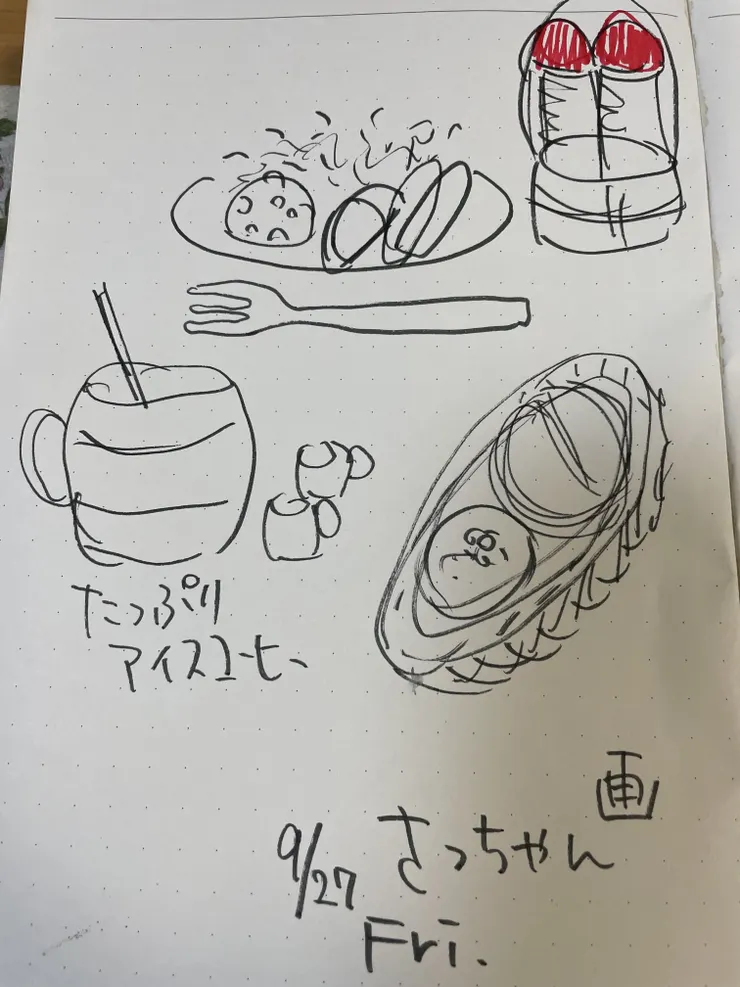 たっぷり
アイスコーヒー
画
さっちゃん
9/27
Fri.